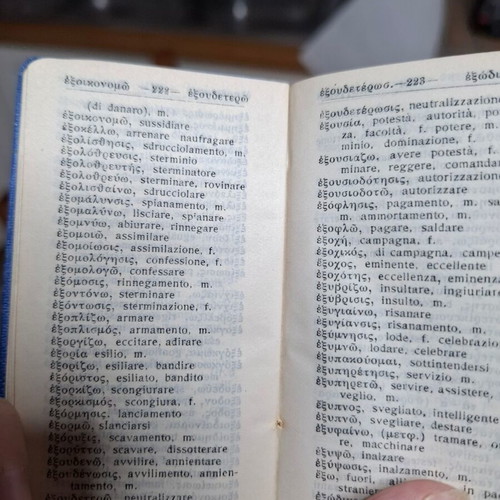 ἐξοικονομῶ —222— ἐξουδετερῶ
(di danaro), m.
ἐξοικονομῶ, sussidiare
ἐξοκέλλω, arrenare naufragare
ἐξολίσθησις, sdrucciolamento, m.
ἐξολόθρευσις, sterminio
ἐξολοθρευτής, sterminatore
ἐξολοθρεύω, sterminare, rovinare
ἐξολισθαίνω, sdrucciolare
ἐξομάλυνσις, spianamento, m.
ἐξομαλύνω, lisciare, spianare
ἐξομνύω, abiurare, rinnegare
ἐξομοιῶ, assimilare
ἐξομοίωσις, assimilazione, f.
ἐξομολόγησις, confessione, f.
ἐξομολογῶ, confessare
ἐξόμοσις, rinnegamento, m.
ἐξοντόνω, sterminare
ἐξόντωσις, sterminazione, f.
ἐξοπλίζω, armare
ἐξοπλισμός, armamento, m.
ἐξοργίζω, eccitare, adirare
ἐξορία esilio, m.
ἐξορίζω, esiliare, bandire
ἐξόριστος, esiliato, bandito
ἐξορκίζω, scongiurare
ἐξορκισμός, scongiura, f.
ἐξόρμησις, lanciamento
ἐξορμῶ, slanciarsi
ἐξόρυξις, scavamento, m.
ἐξορύττω, scavare, dissotterare
ἐξουδενῶ, avvilire, annientare
ἐξουδένωσις, avvilimento, annien-
tamento, m.
neutralizzare
ἐξουδετέρωσ.—223— ἐξώδι
ἐξουδετέρωσις, neutralizzazion
ἐξουσία, potestà, autorità, po
za, facoltà, f. potere, m.
minio, dominazione, f.
ἐξουσιάζω, avere potestà, f
minare, reggere, comandar
ἐξουσιοδότησις, autorizzazione
ἐξουσιοδοτῶ, autorizzare
ἐξόφλησις, pagamento, m. sa
m. ammortamento, m.
ἐξοφλῶ, pagare, saldare
ἐξοχή, campagna, f.
ἐξοχικός, di campagna, campe
ἔξοχος, eminente, eccellente
ἐξοχότης, eccellenza, eminenza
ἐξυβρίζω, insultare, ingiurian
ἐξύβρισις, insulto, m.
ἐξυγιαίνω, risanare
ἐξυγίανσις, risanamento, m.
ἐξύμνησις, lode, f. celebrazio
ἐξυμνῶ, lodare, celebrare
ἐξυπακούομαι, sottintendersi
ἐξυπηρέτησις, servizio m.
ἐξυπηρετῶ, servire, assistere,
veglio, m.
ἔξυπνος, svegliato, intelligente
ἐξυπνῶ, svegliare, destare
ἐξυφαίνω, (μετφ.) tramare, o
re, macchinare
ἐξυψῶ, inalzare
ἐξύψωσις, inalzamento, m.
ἔξω, fuori,